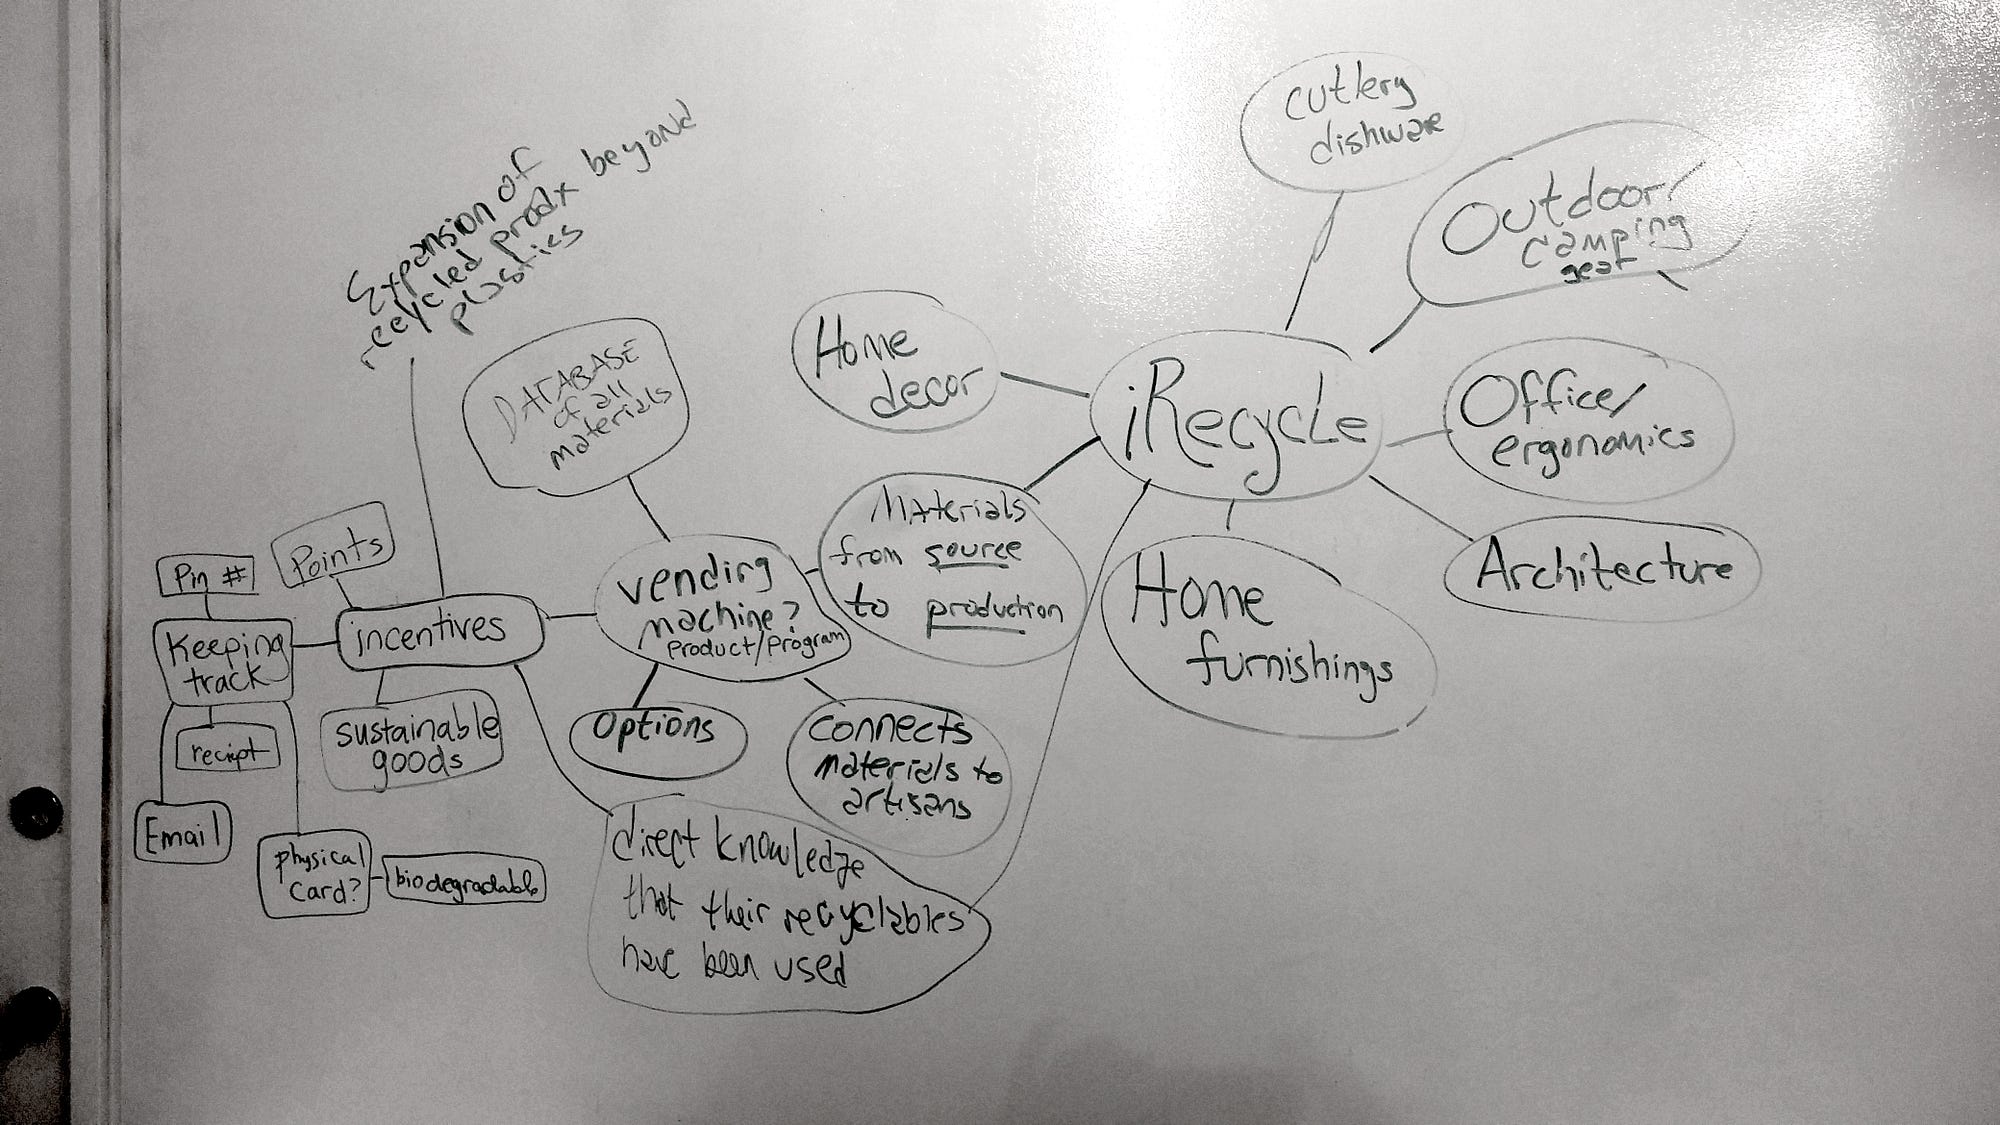 cutlery
dishware
Outdoor/
camping
gear
Expansion of
recycled prodx beyond
plastics
Home
decor
iRecycle
Office/
ergonomics
DATABASE
of all
materials
Materials
from source
to production
Architecture
Home
furnishings
vending
machine?
product/program
Points
Pin #
incentives
Keeping
track
sustainable
goods
reciept
options
connects
materials to
artisans
Email
physical
card?
biodegradable
direct knowledge
that their recyclables
have been used